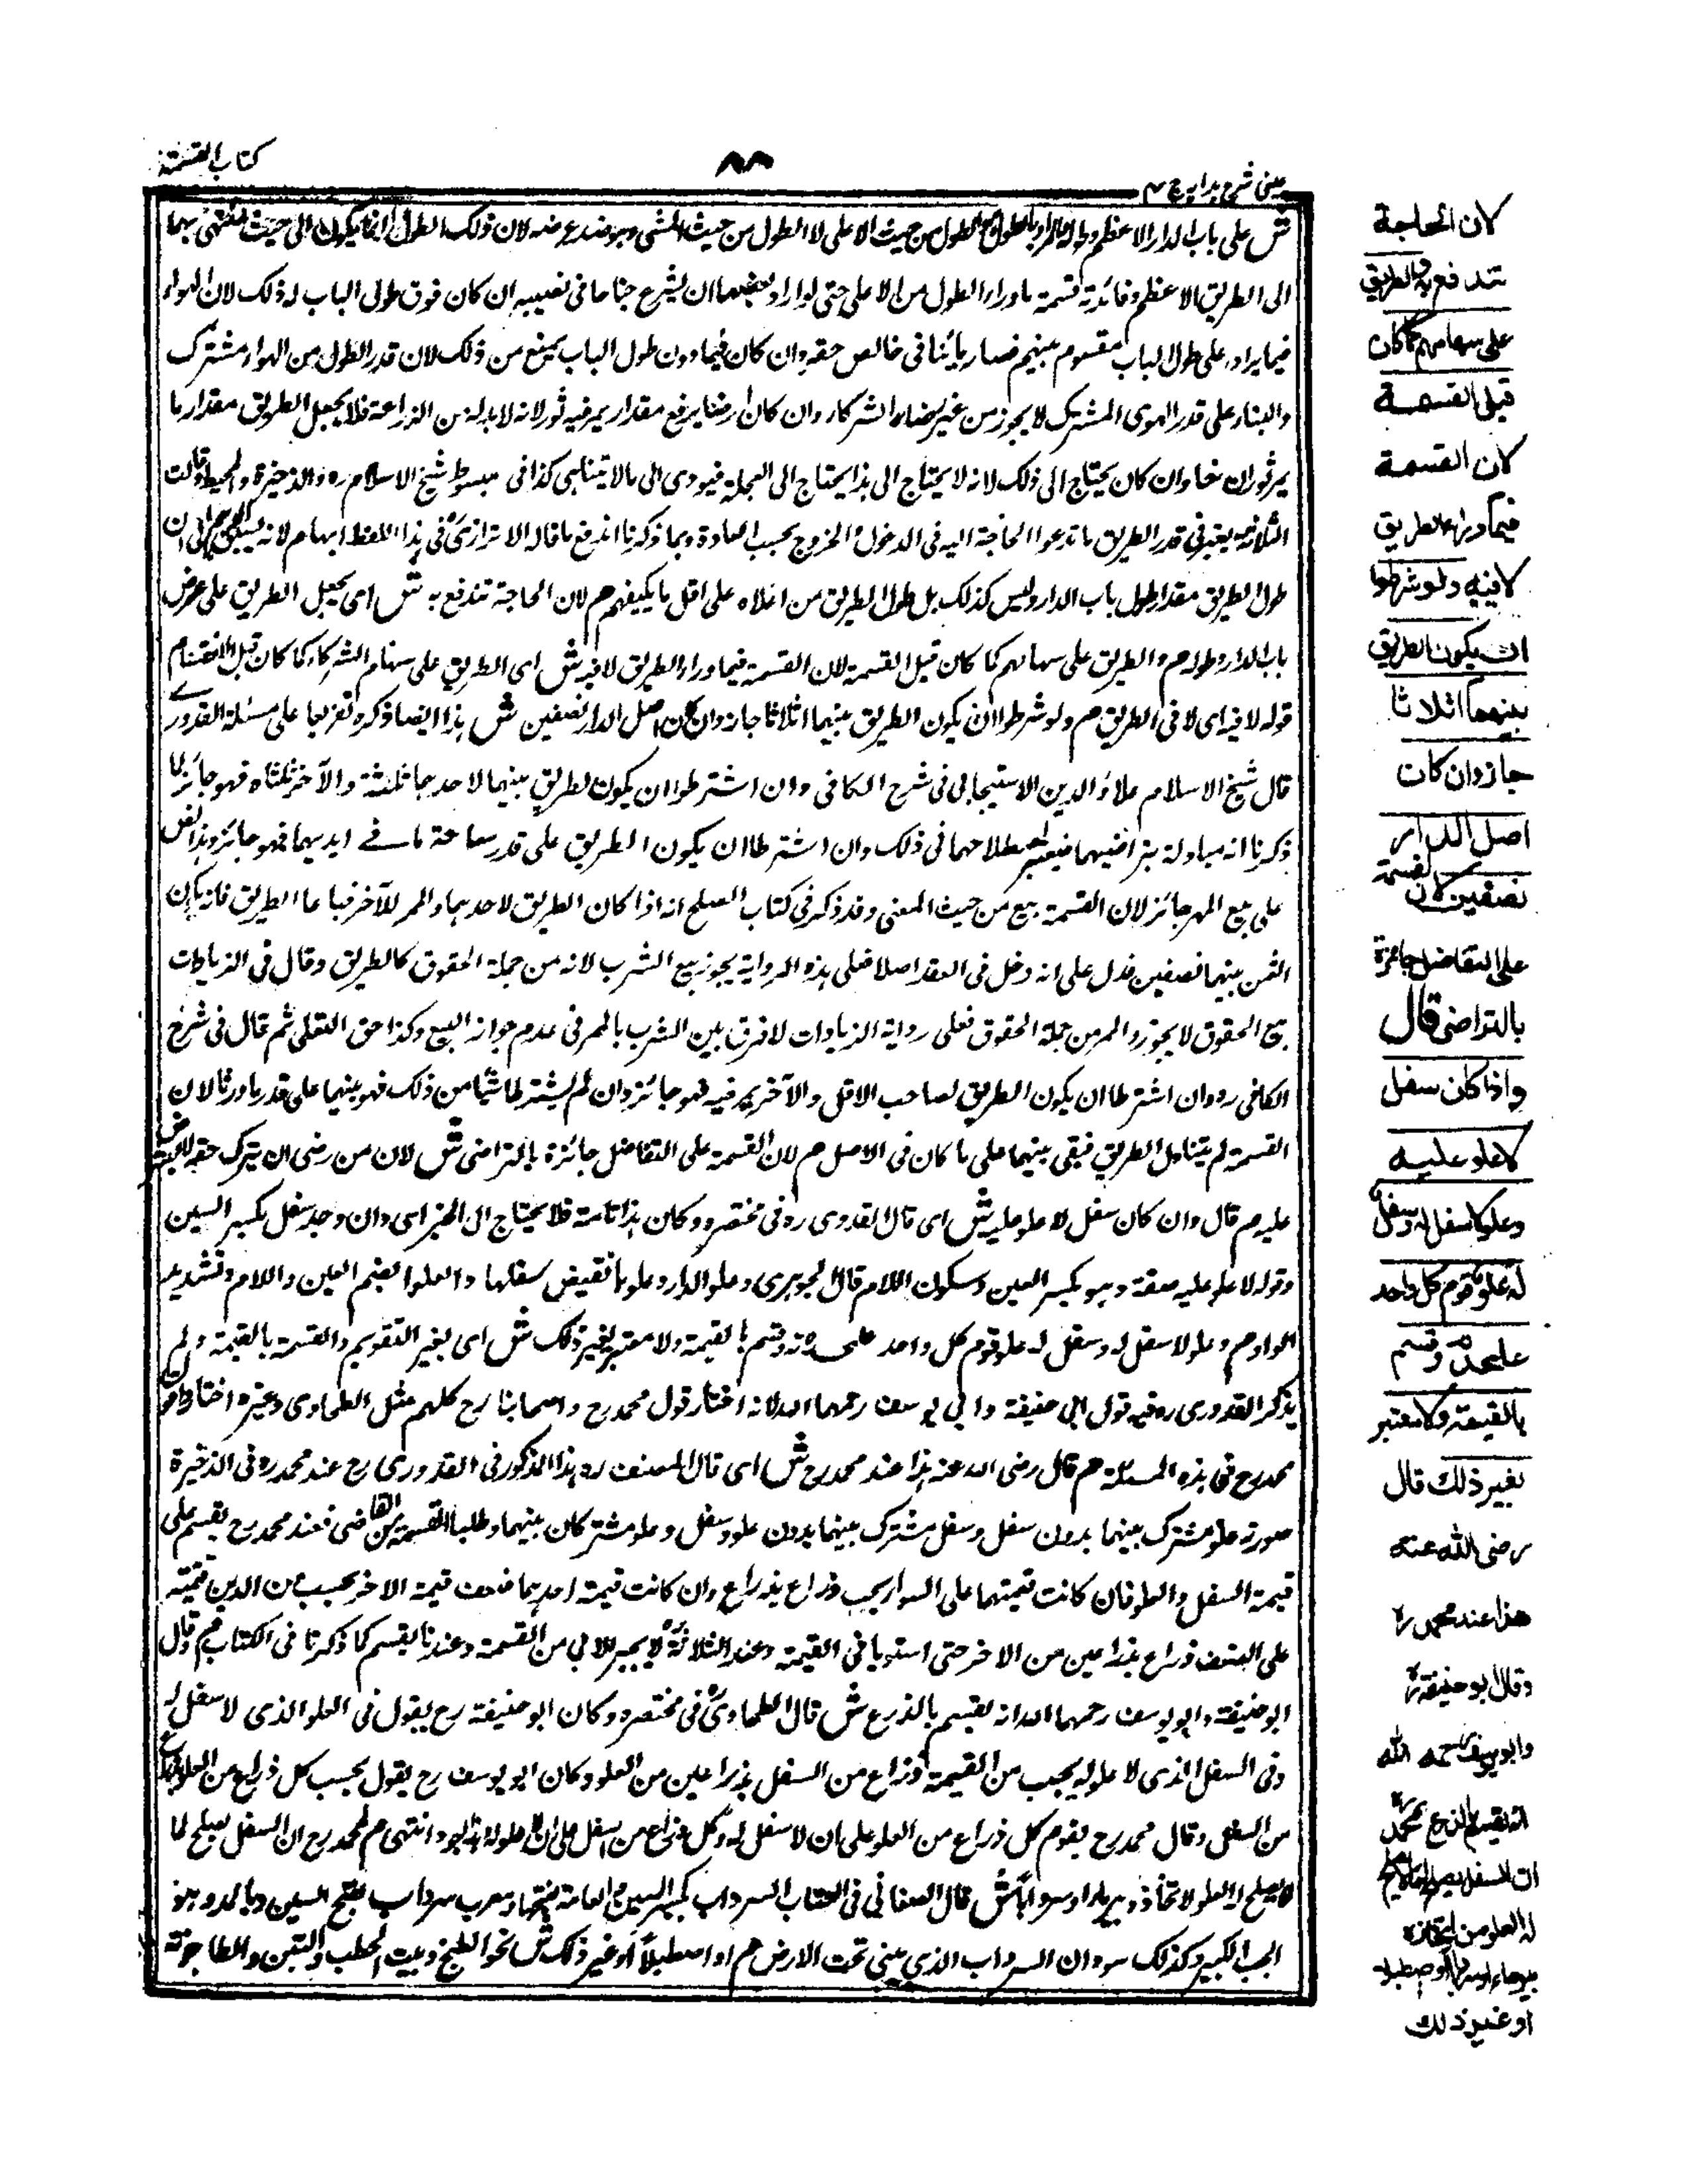 كتاب القسمة
٨٨
عينى شرح هدايه ج ٣
ش على باب الدار الاعظم وطوله المراد بالطول الطول من حيث الاعلى لا الطول من حيث المشى وهو ضد عرضه لان ذلك الطول انما يكون الى حيث ينتهى بهما
الى الطريق الاعظم وفائدته قسمة ماوراء الطول من الاعلى حتى لو اراد بعضهما ان يشرع جناحا فى نصيبه ان كان فوق طول الباب له ذلك لان الهواء
فيما يزاد على طول الباب مقسوم بينهم فصار بائنا فى خالص حقه وان كان فيما دون طول الباب يمنع من ذلك لان قدر الطول من الهواء مشترك
والبناء على قدر الهوى المشترك لا يجوز من غير رضاء الشركاء وان كان ارضا يرفع مقدار يمر فيه ثور لانه لا بد له من الزراعة فلا يجعل الطريق مقدار ما
يمر ثوران معا وان كان يحتاج الى ذلك لانه لا يحتاج الى هذا يحتاج الى العجلة فيودى الى ما لا يتناهى كذا فى مبسوط شيخ الاسلام ره والذخيرة والمحيط وقالت
الثلاثة يعتبر فى قدر الطريق ما تدعوا الحاجة اليه فى الدخول والخروج بحسب العادة وبما ذكرنا اندفع ما قاله الاترازى فى هذا اللفظ ابهام لانه يسبق الى الوهم ان
طول الطريق مقدار طول باب الدار وليس كذلك بل طول الطريق من اعلاه على اقل ما يكفيهم م لان الحاجة تندفع به ش اى يجعل الطريق على عرض
باب الدار وطوله م والطريق على سهامهم كما كان قبل القسمة لان القسمة فيما وراء الطريق لا فيه ش اى الطريق على سهام الشركاء كما كان قبل الانقسام
قوله لا فيه اى لا فى الطريق م ولو شرطوا ان يكون الطريق بينهما اثلاثا جاز وان كان اصل الدار نصفين ش هذا ايضا ذكره تفريعا على مسئلة القدورى
قال شيخ الاسلام علاؤ الدين الاسبيجابى فى شرح الكافى وان اشترطوا ان يكون الطريق بينهما لاحدهما ثلثه والآخر ثلثاه فهو جائز لما
ذكرنا انه مبادلة بتراضيهما فيعتبر اصطلاحهما فى ذلك وان اشترطا ان يكون الطريق على قدر مساحة ما فى ايديهما فهو جائز وهذا نص
على بيع الممر جائز لان القسمة بيع من حيث المعنى وقد ذكر فى كتاب الصلح انه اذا كان الطريق لاحدهما والممر للآخر فباعا الطريق فانه يكون
الثمن بينهما نصفين فدل على انه دخل فى العقد اصلا فعلى هذه الرواية يجوز بيع الشرب لانه من جملة الحقوق كالطريق وقال فى الزيادات
بيع الحقوق لا يجوز والممر من جملة الحقوق فعلى رواية الزيادات لا فرق بين الشرب بالممر فى عدم جواز البيع وكذا حق التعلى ثم قال فى شرح
الكافى ره وان اشترطا ان يكون الطريق لصاحب الاقل والآخر يمر فيه فهو جائز وان لم يشترطا شيئا من ذلك فهو بينهما على قدر ما ورثا لان
القسمة لم يتناول الطريق فبقى بينهما على ما كان فى الاصل م لان القسمة على التفاضل جائزة بالتراضى ش لان من رضى ان يترك حقه
عليه م قال وان كان سفل لا علو عليه ش اى قال القدورى ره فى مختصره وكان هذا تامة فلا يحتاج الى الخبر اى وان وجد سفل بكسر السين
وقوله لا علو عليه صفة وهو بكسر العين وسكون اللام قال الجوهرى وعلو الدار وعلوها نقيض سفلها والعلوا بضم العين واللام وتشديد
الواو م وعلو لا سفل له وسفل له علو قوم كل واحد على حدته وقسم بالقيمة ولا معتبر بغير ذلك ش اى بغير التقويم والقسمة بالقيمة ولم
يذكر القدورى ره فيه قول ابى حنيفة وابى يوسف رحمهما الله لانه اختار قول محمد رح واصحابنا رح كلهم مثل الطحاوى وغيره اختاروا قول
محمد رح فى هذه المسئلة م قال رضى الله عنه هذا عند محمد رح ش اى قال المصنف ره هذا المذكور فى القدورى رح عند محمد ره وفى الذخيرة
صورته علو مشترك بينهما بدون سفل وسفل مشترك بينهما بدون علو وسفل وعلو مشترك كان بينهما وطلبا القسمة من القاضى فعند محمد رح يقسم على
قيمة السفل والعلو فان كانت قيمتهما على السواء يحسب ذراع بذراع وان كانت قيمة احدهما ضعف قيمة الاخر يحسب من الذى قيمته
على الضعف ذراع بذراعين من الاخر حتى استويا فى القيمة وعند الثلاثة لا يجبر الابى من القسمة وعندنا يقسم كما ذكرنا فى الكتاب م وقال
ابو حنيفة وابو يوسف رحمهما الله انه يقسم بالذرع ش قال الطحاوى فى مختصره وكان ابو حنيفة رح يقول فى العلو الذى لا سفل له
وفى السفل الذى لا علو له يحسب من القيمة ذراع من السفل بذراعين من العلو وكان ابو يوسف رح يقول يحسب كل ذراع من العلو بذراع
من السفل وقال محمد رح يقوم كل ذراع من العلو على ان لا سفل له وكل ذراع من السفل على ان لا علو له انتهى م لمحمد رح ان السفل يصلح لما
لا يصلح له العلو لاتخاذه بير ماء او سردابا ش قال الصغانى فى العباب السرداب بكسر السين والعامة تفتحها معرب سرداب بفتح السين وبالمد وهو
الجب الكبير وكذلك سردان السرداب الذى يبنى تحت الارض م او اصطبلا او غير ذلك ش نحو الطبخ وبيت الحطب والتبن والطاحونة
لان الحاجة
تندفع به والطريق
على سهامهم كما كان
قبل القسمة
لان القسمة
فيما وراء الطريق
لا فيه ولو شرطوا
ان يكون الطريق
بينهما اثلاثا
جاز وان كان
اصل الدار
نصفين لان القسمة
على التفاضل جائزة
بالتراضى قال
واذا كان سفل
لا علو عليه
وعلو لا سفل له وسفل
له علو قوم كل واحد
على حدة وقسم
بالقيمة ولا معتبر
بغير ذلك قال
رضى الله عنه
هذا عند محمد ره
وقال ابو حنيفة ره
وابو يوسف رحمه الله
انه يقسم بالذرع لمحمد ره
ان السفل يصلح لما لا يصلح
له العلو من اتخاذه
بير ماء او سردابا او اصطبلا
او غير ذلك